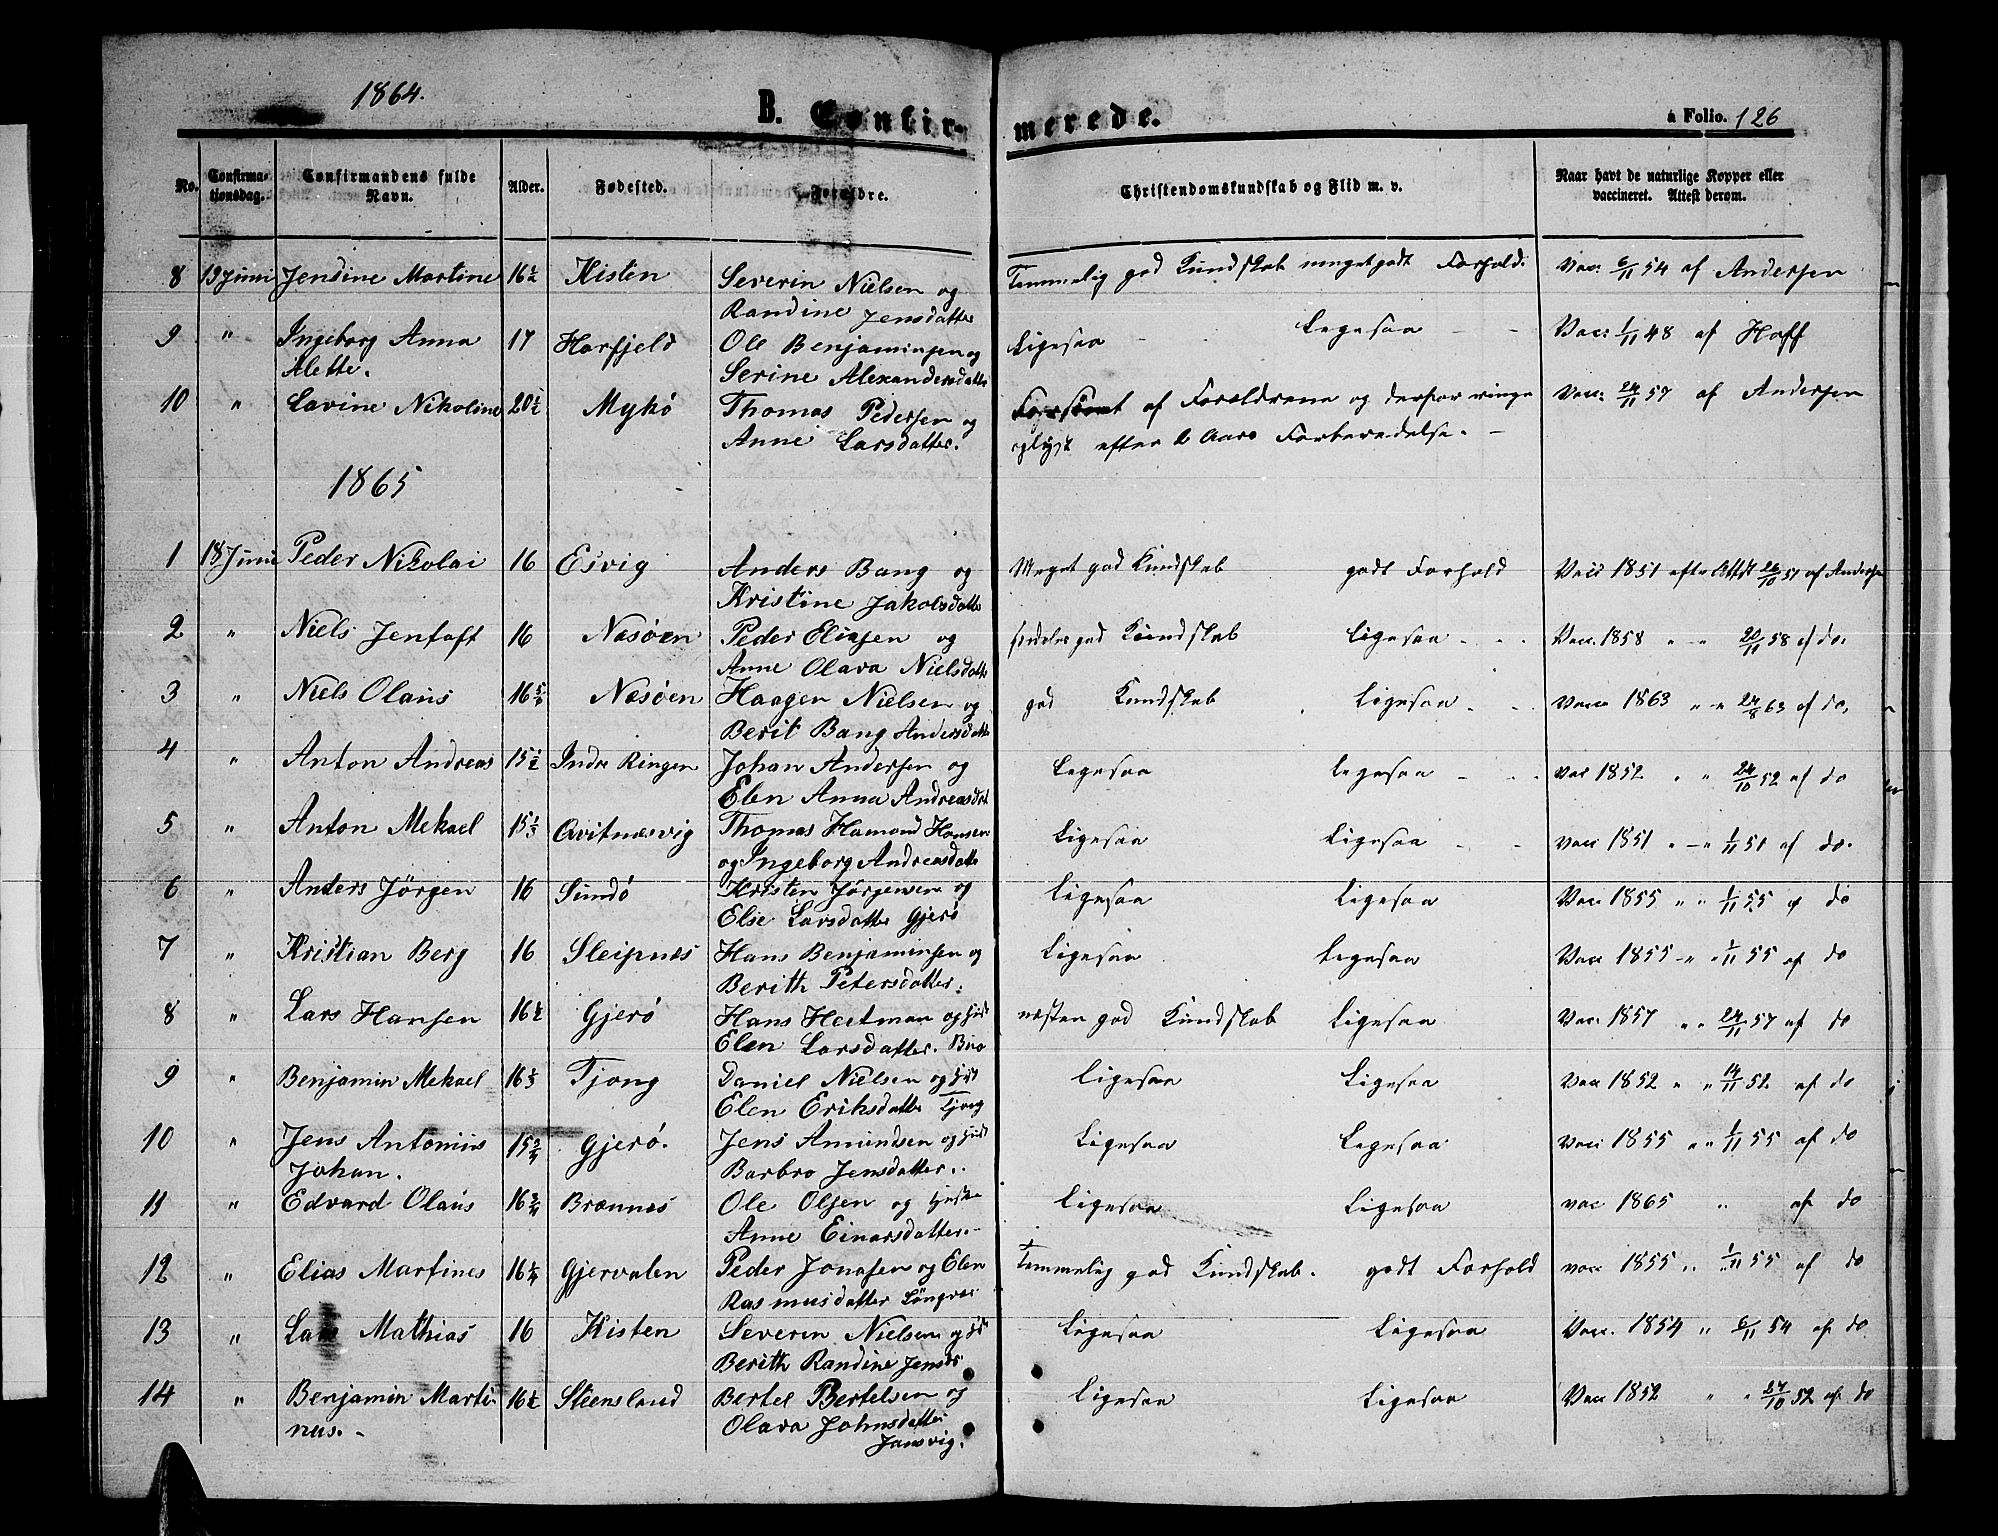 1864.
B. Confirmerede.
à Folio. 126
No. Confirmationsdag. Confirmandens fulde Navn. Alder. Fødested. Forældre. Christendomskundskab og Flid m. v. Naar havt de naturlige Kopper eller vaccineret. Attest derom.
8 19 Juni Jensine Martine 16½ Kisten Severin Nielsen og Temmelig god Kundskab meget godt Forhold. Vac: 6/11 54 af Andersen
Randine Jensdatter
9 " Ingeborg Anna 17 Harfjeld Ole Benjaminsen og Ligesaa - Ligesaa - - Vac: 1/11 48 af Hoff
Alette. Serine Alexandersdatter
10 " Lavine Nikoline 20½ Mykö Thomas Pedersen og af Forældrene og derfor ringe Vac: 24/11 57 af Andersen
Anne Larsdatter. oplyst efter 2 Aars Forberedelse. -
1865
1 18 Juni Peder Nikolai 16 Esvig Anders Bang og Meget god Kundskab godt Forhold Vacc 1851 efter Attst 26/10 51 af Andersen
Kristine Jakobsdatter
2 " Niels Jentoft 16 Nesöen Peder Eliasen og god Kundskab Ligesaa - - Vac. 1858 " - " 20/11 58 af do.
Anne Olava Nielsdatter
3 " Niels Olaus 16 Nesöen Haagen Nielsen og god Kundskab Ligesaa - - Vacc 1863 " - " 24/8 63 af do,
Berit Bang Andersdatter
4 " Anton Andreas 15½ Indre Ringen Johan Andersen og Ligesaa Ligesaa - - vac 1852 " " 24/10 52 af do
Elen Anna Andreasdat
5 " Anton Mekael 15⅓ Qvitnesvig Thomas Hamond Hansen Ligesaa Ligesaa - - vacc 1851 " - " 1/11 51 af do.
og Ingeborg Andreasdatter
6 " Anders Jörgen 16 Sundö Kristen Jörgensen og Ligesaa Ligesaa Vacc 1855 " " 1/11 55 af do
Else Larsdatter Gjerö
7 " Kristian Berg 16 Sleipnes Hans Benjaminsen og Ligesaa Ligesaa Vacc 1855 - " " 1/11 55 af do
Berith Petersdatter.
8 " Lars Hansen 16½ Gjerö Hans Heitman og Hust næsten god Kundskab Ligesaa Vac. 1857 " " 24/11 57 af do
Elen Larsdatter.
9 " Benjamin Mekael 16⅓ Tjong Daniel Nielsen og Hust Ligesaa Ligesaa Vac 1852 " " 14/11 52 af do
Elen Eriksdatter Tjong
10 " Jens Antonius 15¾ Gjerö. Jens Amundsen og Hust Ligesaa Ligesaa Vac: 1855 " " 1/11 55 af do
Johan. Barbro Jensdatter.
11 " Edvard Olaus 16¾ Brennes Ole Olsen og Hustru Ligesaa Ligesaa vac 1865 " af do
Anne Einarsdatter.-
12 " Elias Martines 16¼ Gjervalen Peder Jonasen og Elen Temmelig god Kundskab. godt Forhold vacc 1855 " " 1/11 55 af do
Rasmusdatter
13 " Lars Mathias 16 Kisten Severin Nielsen og Hust Ligesaa Ligesaa Vacc. 1854 " 6/11 54 af do
Berith Randine Jensdr
14 " Benjamin Marti- 16½ Steensland Bertel Bertelsen og Ligesaa Ligesaa Vacc 1852 " " 27/10 52 af do
nus.- Olava Johnsdatter
Jansvig.